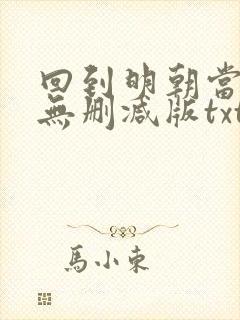 回到明朝當
無刪減版txt
馬小東